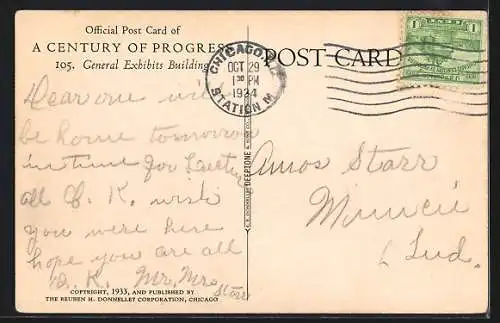 Official Post Card of
A CENTURY OF PROGRESS
105. General Exhibits Building
POST CARD
CHICAGO, ILL.
OCT 29
1 30 PM
1934
STATION M.
1 1
Dear one
be home tomorrow
in time for
all O. K. wish
you were here
hope you are all
O. K. Mr. Mrs
Starr
Amos Starr
Muncie
Ind.
C. R. DONNELLEY DEEPTONE
COPYRIGHT, 1933, AND PUBLISHED BY
THE REUBEN H. DONNELLEY CORPORATION, CHICAGO